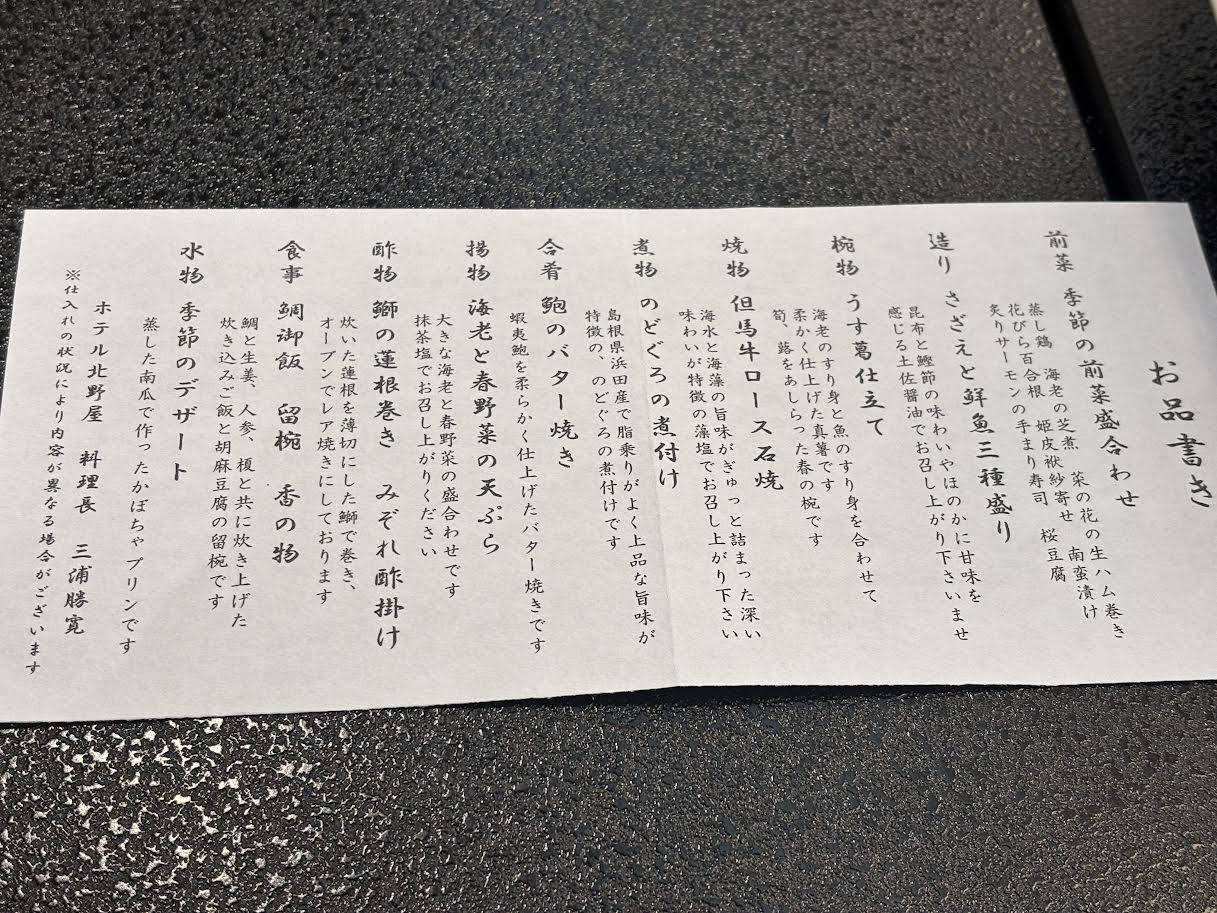 お品書き
前菜 季節の前菜盛合わせ
蒸し鶏 海老の芝煮 菜の花の生ハム巻き
花びら百合根 姫皮袱紗寄せ 南蛮漬け
炙りサーモンの手まり寿司 桜豆腐
造り さざえと鮮魚三種盛り
昆布と鰹節の味わいやほのかに甘味を
感じる土佐醤油でお召し上がり下さいませ
椀物 うす葛仕立て
海老のすり身と魚のすり身を合わせて
柔かく仕上げた真薯です
筍、蕗をあしらった春の椀です
焼物 但馬牛ロース石焼
海水と海藻の旨味がぎゅっと詰まった深い
味わいが特徴の藻塩でお召し上がり下さい
煮物 のどぐろの煮付け
島根県浜田産で脂乗りがよく上品な旨味が
特徴の、のどぐろの煮付けです
合肴 鮑のバター焼き
蝦夷鮑を柔らかく仕上げたバター焼きです
揚物 海老と春野菜の天ぷら
大きな海老と春野菜の盛合わせです
抹茶塩でお召し上がりください
酢物 鰤の蓮根巻き みぞれ酢掛け
炊いた蓮根を薄切にした鰤で巻き、
オーブンでレア焼きにしております
食事 鯛御飯 留椀 香の物
鯛と生姜、人参、榎と共に炊き上げた
炊き込みご飯と胡麻豆腐の留椀です
水物 季節のデザート
蒸した南瓜で作ったかぼちゃプリンです
ホテル北野屋 料理長 三浦勝寛
※仕入れの状況により内容が異なる場合がございます